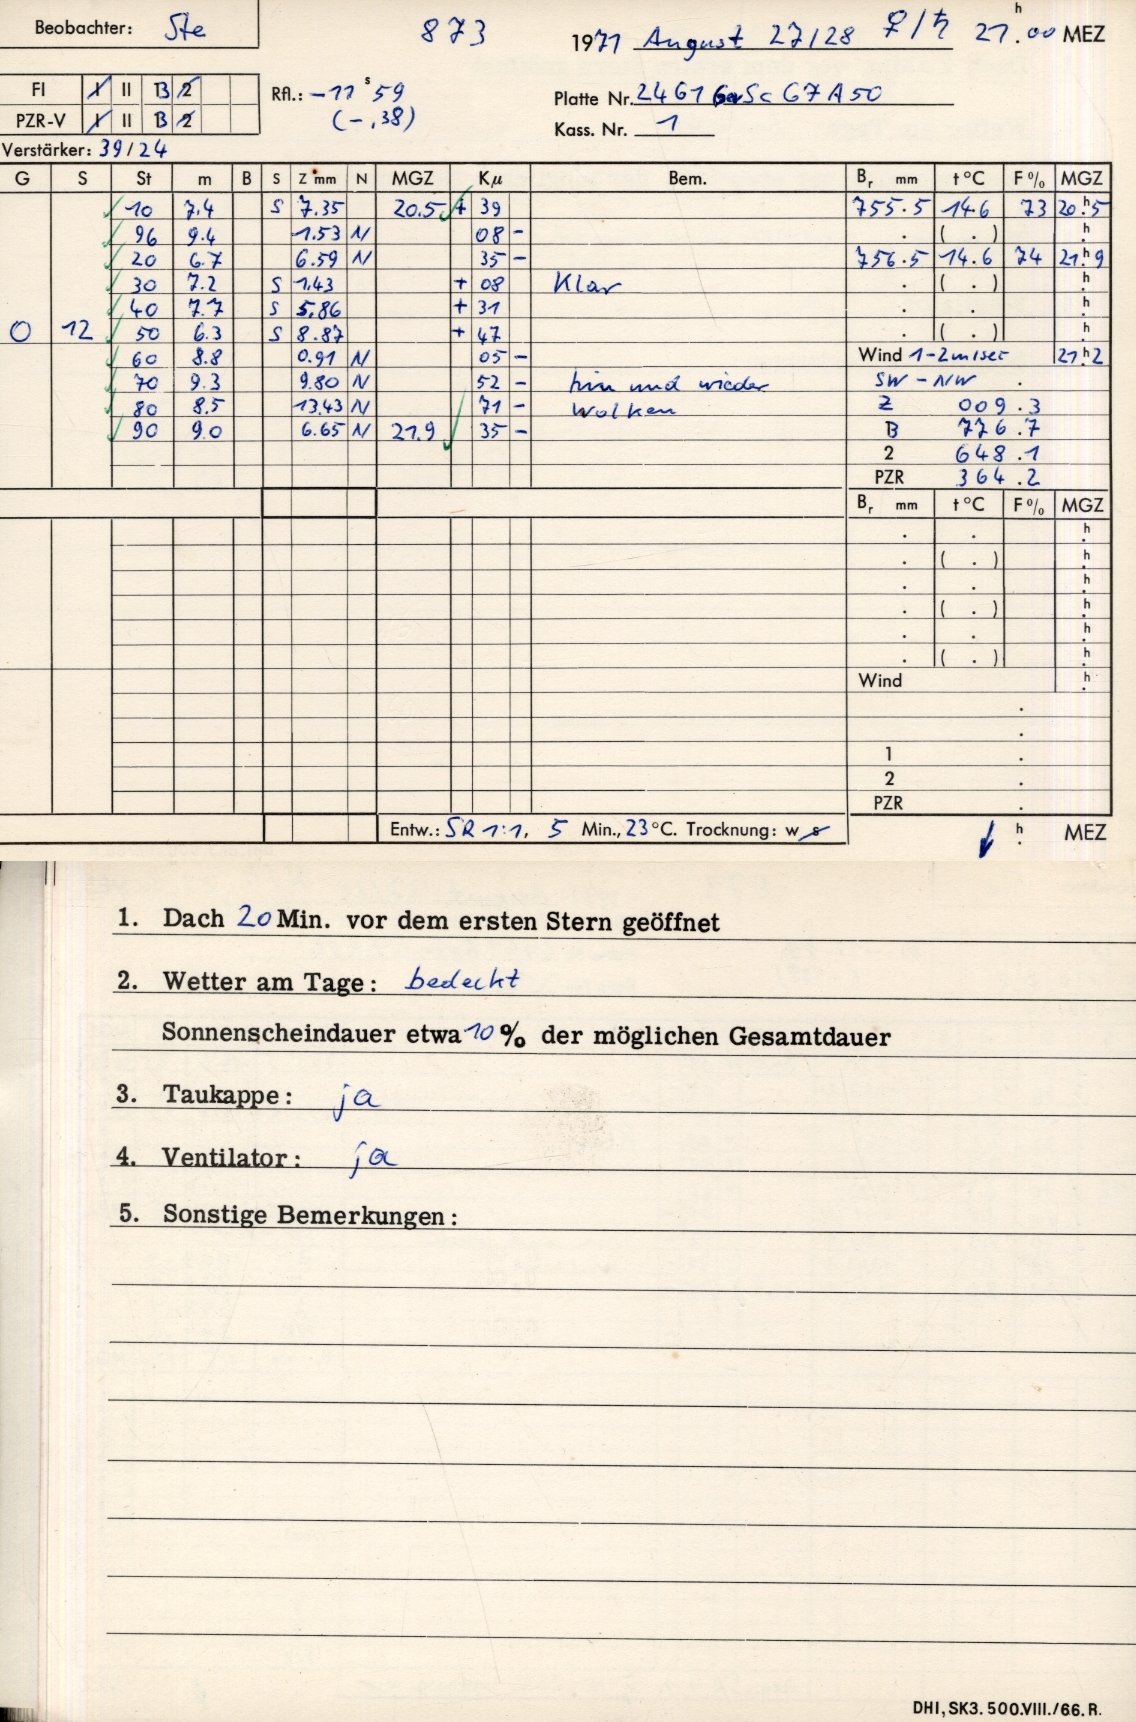 Beobachter: Ste 873 1971 August 27/28 ♀/♄ 21h.00 MEZ
FI I II B 2 Rfl.: -11s59 Platte Nr. 2461 Sc 67 A 50
PZR-V I II B 2 (-,38) Kass. Nr. 1
Verstärker: 39/24
G S St m B S Z mm N MGZ Kμ Bem. Br mm t°C F% MGZ
10 7.4 S 7.35 20.5 + 39 755.5 14.6 73 20h.5
96 9.4 1.53 N 08 - . ( . ) h.
20 6.7 6.59 N 35 - 756.5 14.6 74 21h.9
30 7.2 S 1.43 + 08 Klar . ( . ) h.
40 7.7 S 5.86 + 31 . . h.
0 12 50 6.3 S 8.87 + 47 . ( . ) h.
60 8.8 0.91 N 05 - Wind 1-2m/sec 21h.2
70 9.3 9.80 N 52 - hin und wieder SW - NW .
80 8.5 13.43 N 71 - Wolken Z 009.3
90 9.0 6.65 N 21.9 35 - B 776.7
2 648.1
PZR 364.2
Br mm t°C F% MGZ
. . h.
. ( . ) h.
. . h.
. ( . ) h.
. . h.
. ( . ) h.
Wind h.
.
.
1 .
2 .
PZR .
Entw.: SR 1:1, 5 Min., 23°C. Trocknung: w s h. MEZ
1. Dach 20 Min. vor dem ersten Stern geöffnet
2. Wetter am Tage: bedeckt
Sonnenscheindauer etwa 10 % der möglichen Gesamtdauer
3. Taukappe: ja
4. Ventilator: ja
5. Sonstige Bemerkungen:
DHI, SK3. 500.VIII./66. R.